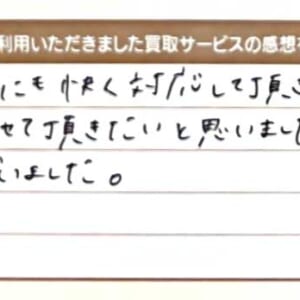 利用いただきました買取サービスの感想
にも快く対応して頂き
せて頂きたいと思いまし
いました。